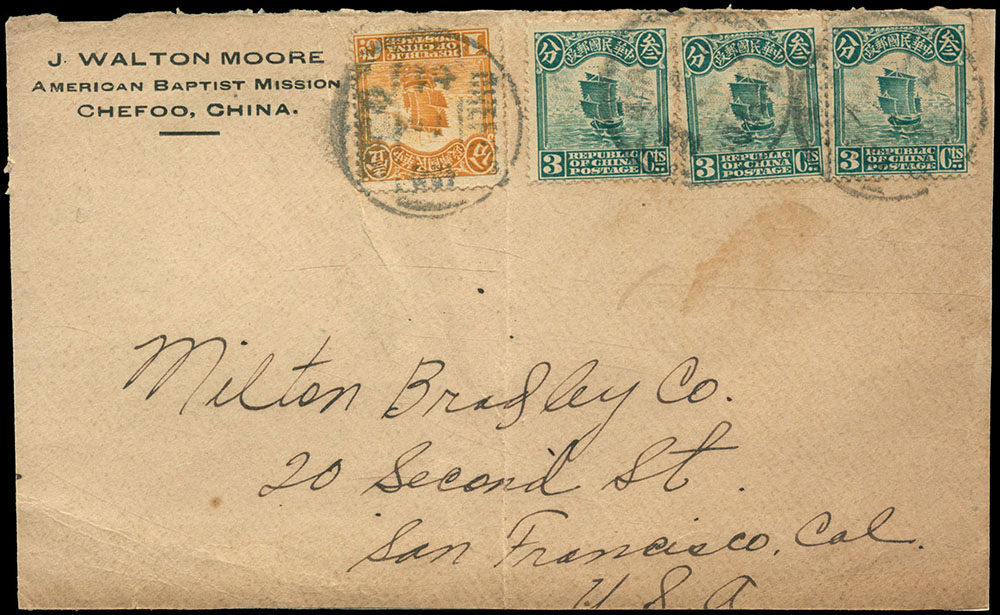 J. WALTON MOORE
AMERICAN BAPTIST MISSION
CHEFOO, CHINA.
中華民國郵政
分 叁
3 REPUBLIC OF CHINA POSTAGE Cts
中華民國郵政
分 叁
3 REPUBLIC OF CHINA POSTAGE Cts
中華民國郵政
分 叁
3 REPUBLIC OF CHINA POSTAGE Cts
REPUBLIC OF CHINA POSTAGE
Milton Bradley Co.
20 Second St.
San Francisco, Cal.
U S A